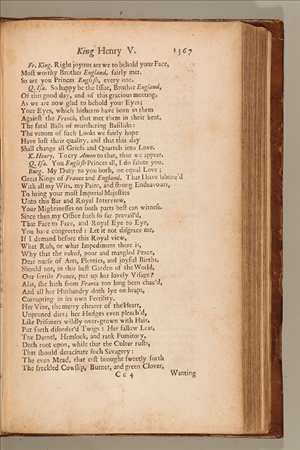 King Henry V. 1367
Fr. King. Right joyous are we to behold your Face,
Most worthy Brother England, fairly met.
So are you Princes English, every one.
Q. Isa. So happy be the Issue, Brother England,
Of this good day, and of this gracious meeting,
As we are now glad to behold your Eyes;
Your Eyes, which hitherto have born in them
Against the French, that met them in their bent,
The fatal Balls of murthering Basilisks:
The venom of such Looks we fairly hope
Have lost their quality, and that this day
Shall change all Griefs and Quarrels into Love.
K. Henry. To cry Amen to that, thus we appear.
Q. Isa. You English Princes all, I do salute you.
Burg. My Duty to you both, on equal Love;
Great Kings of France and England. That I have labour'd
With all my Wits, my Pains, and strong Endeavours,
To bring your most Imperial Majesties
Unto this Bar and Royal Interview,
Your Mightinesses on both parts best can witness.
Since then my Office hath so far prevail'd,
That Face to Face, and Royal Eye to Eye,
You have congreeted: Let it not disgrace me,
If I demand before this Royal view,
What Rub, or what Impediment there is,
Why that the naked, poor and mangled Peace,
Dear nurse of Arts, Plenties, and joyful Births,
Should not, in this best Garden of the World,
Our fertile France, put up her lovely Visage?
Alas, she hath from France too long been chas'd,
And all her Husbandry doth lye on heaps,
Corrupting in its own Fertility.
Her Vine, the merry chearer of the Heart,
Unpruned dies; her Hedges even pleach'd,
Like Prisoners wildly over-grown with Hair,
Put forth disorder'd Twigs: Her fallow Leas,
The Darnel, Hemlock, and rank Fumitory,
Doth root upon, while that the Culter rusts,
That should deracinate such Savagery:
The even Mead, that erst brought sweetly forth
The freckled Cowslip, Burnet, and green Clover,
Ccc 4 Wanting